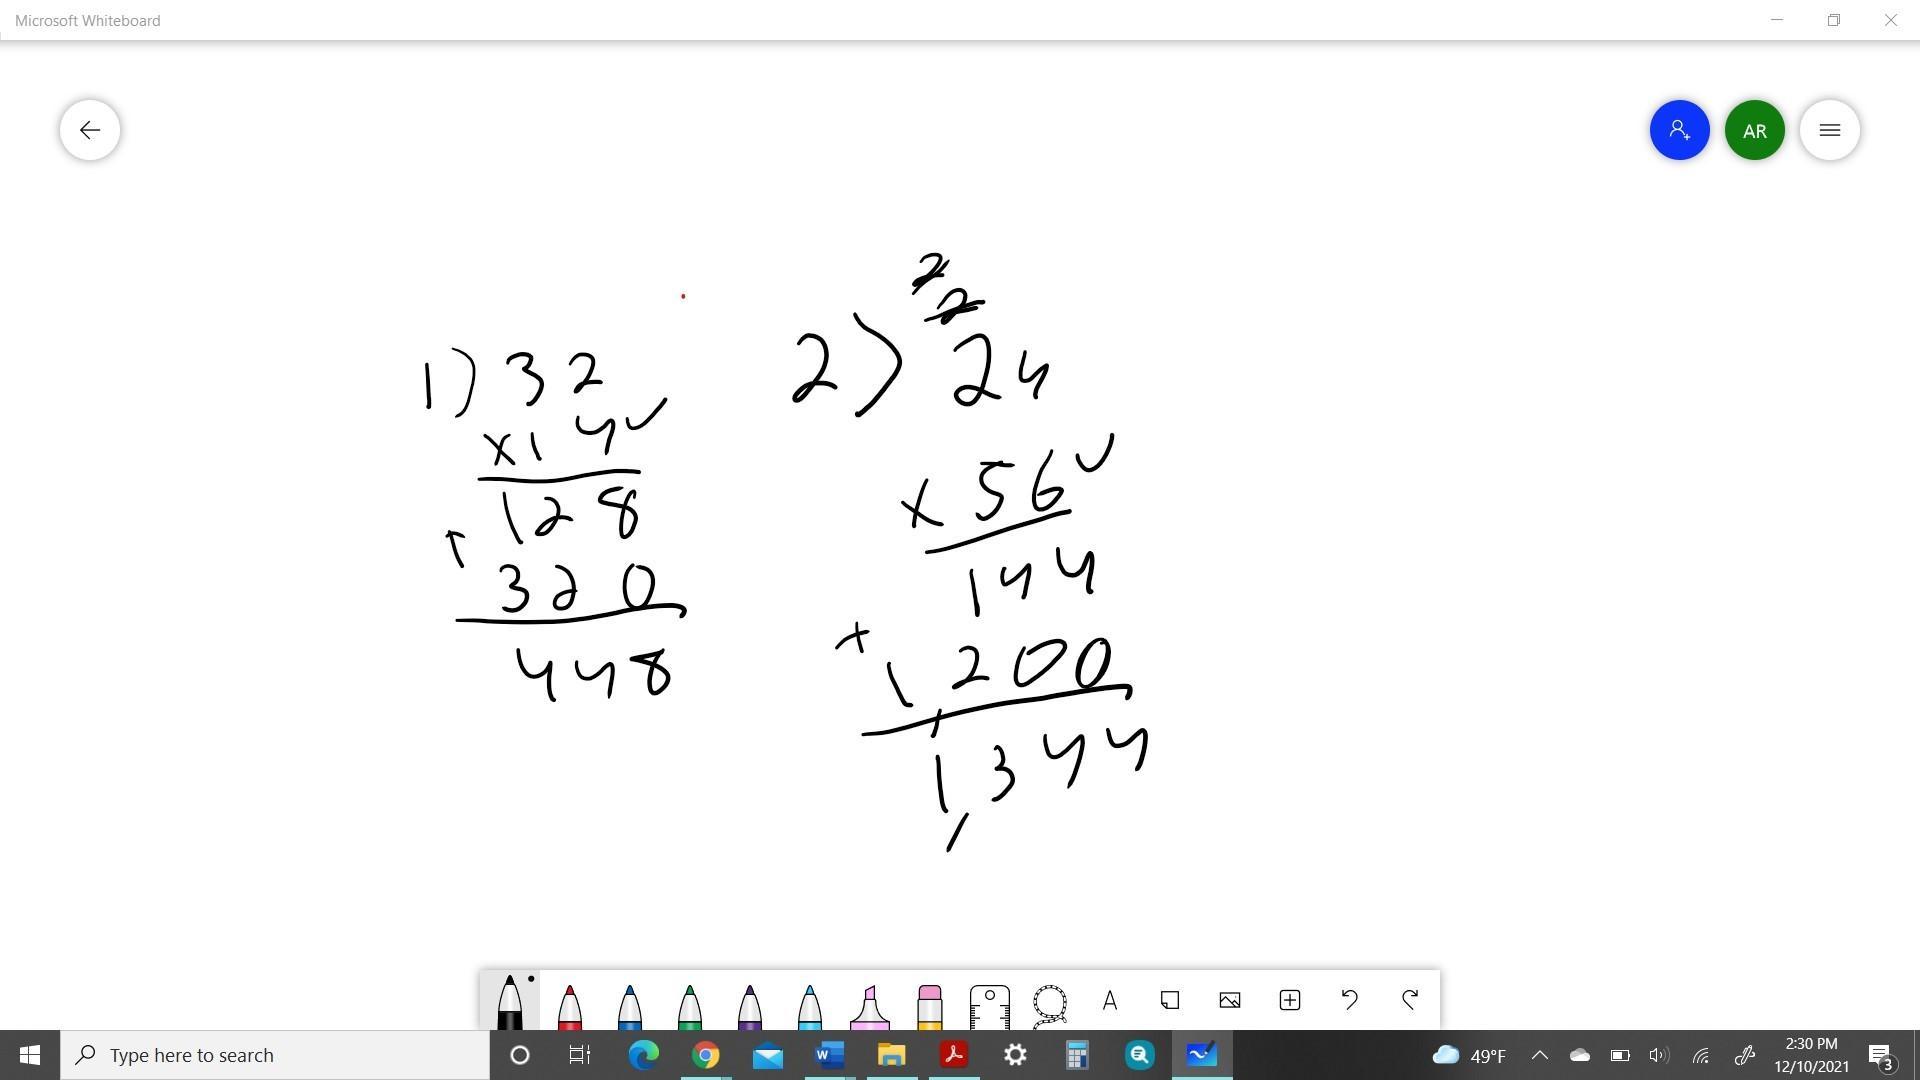 Microsoft Whiteboard
AR
1) 32
x14✓
128
+
320
448
2
2
2) 24
x 56✓
144
+
1,200
1,344
A
Type here to search
49°F
2:30 PM
12/10/2021
3